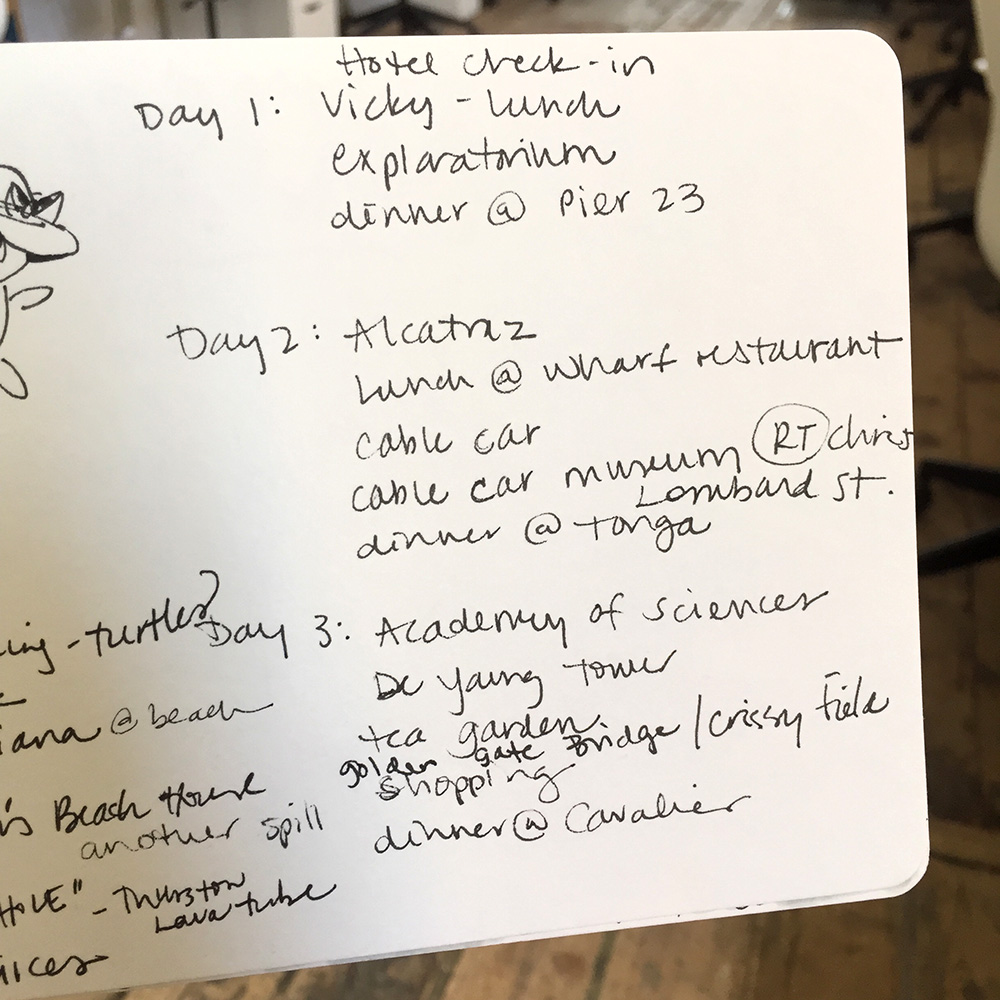 Hotel check-in
Day 1: Vicky - Lunch
exploratorium
dinner @ Pier 23
Day 2: Alcatraz
Lunch @ wharf restaurant
cable car
cable car museum RT chris
Lombard st.
dinner @ tonga
Day 3: Academy of Sciences
De Young tower
tea garden
golden gate Bridge / Crissy Field
shopping
dinner @ Cavalier
-turtles?
@ beach
Beach House
another spill
- Thurston
Lava tube